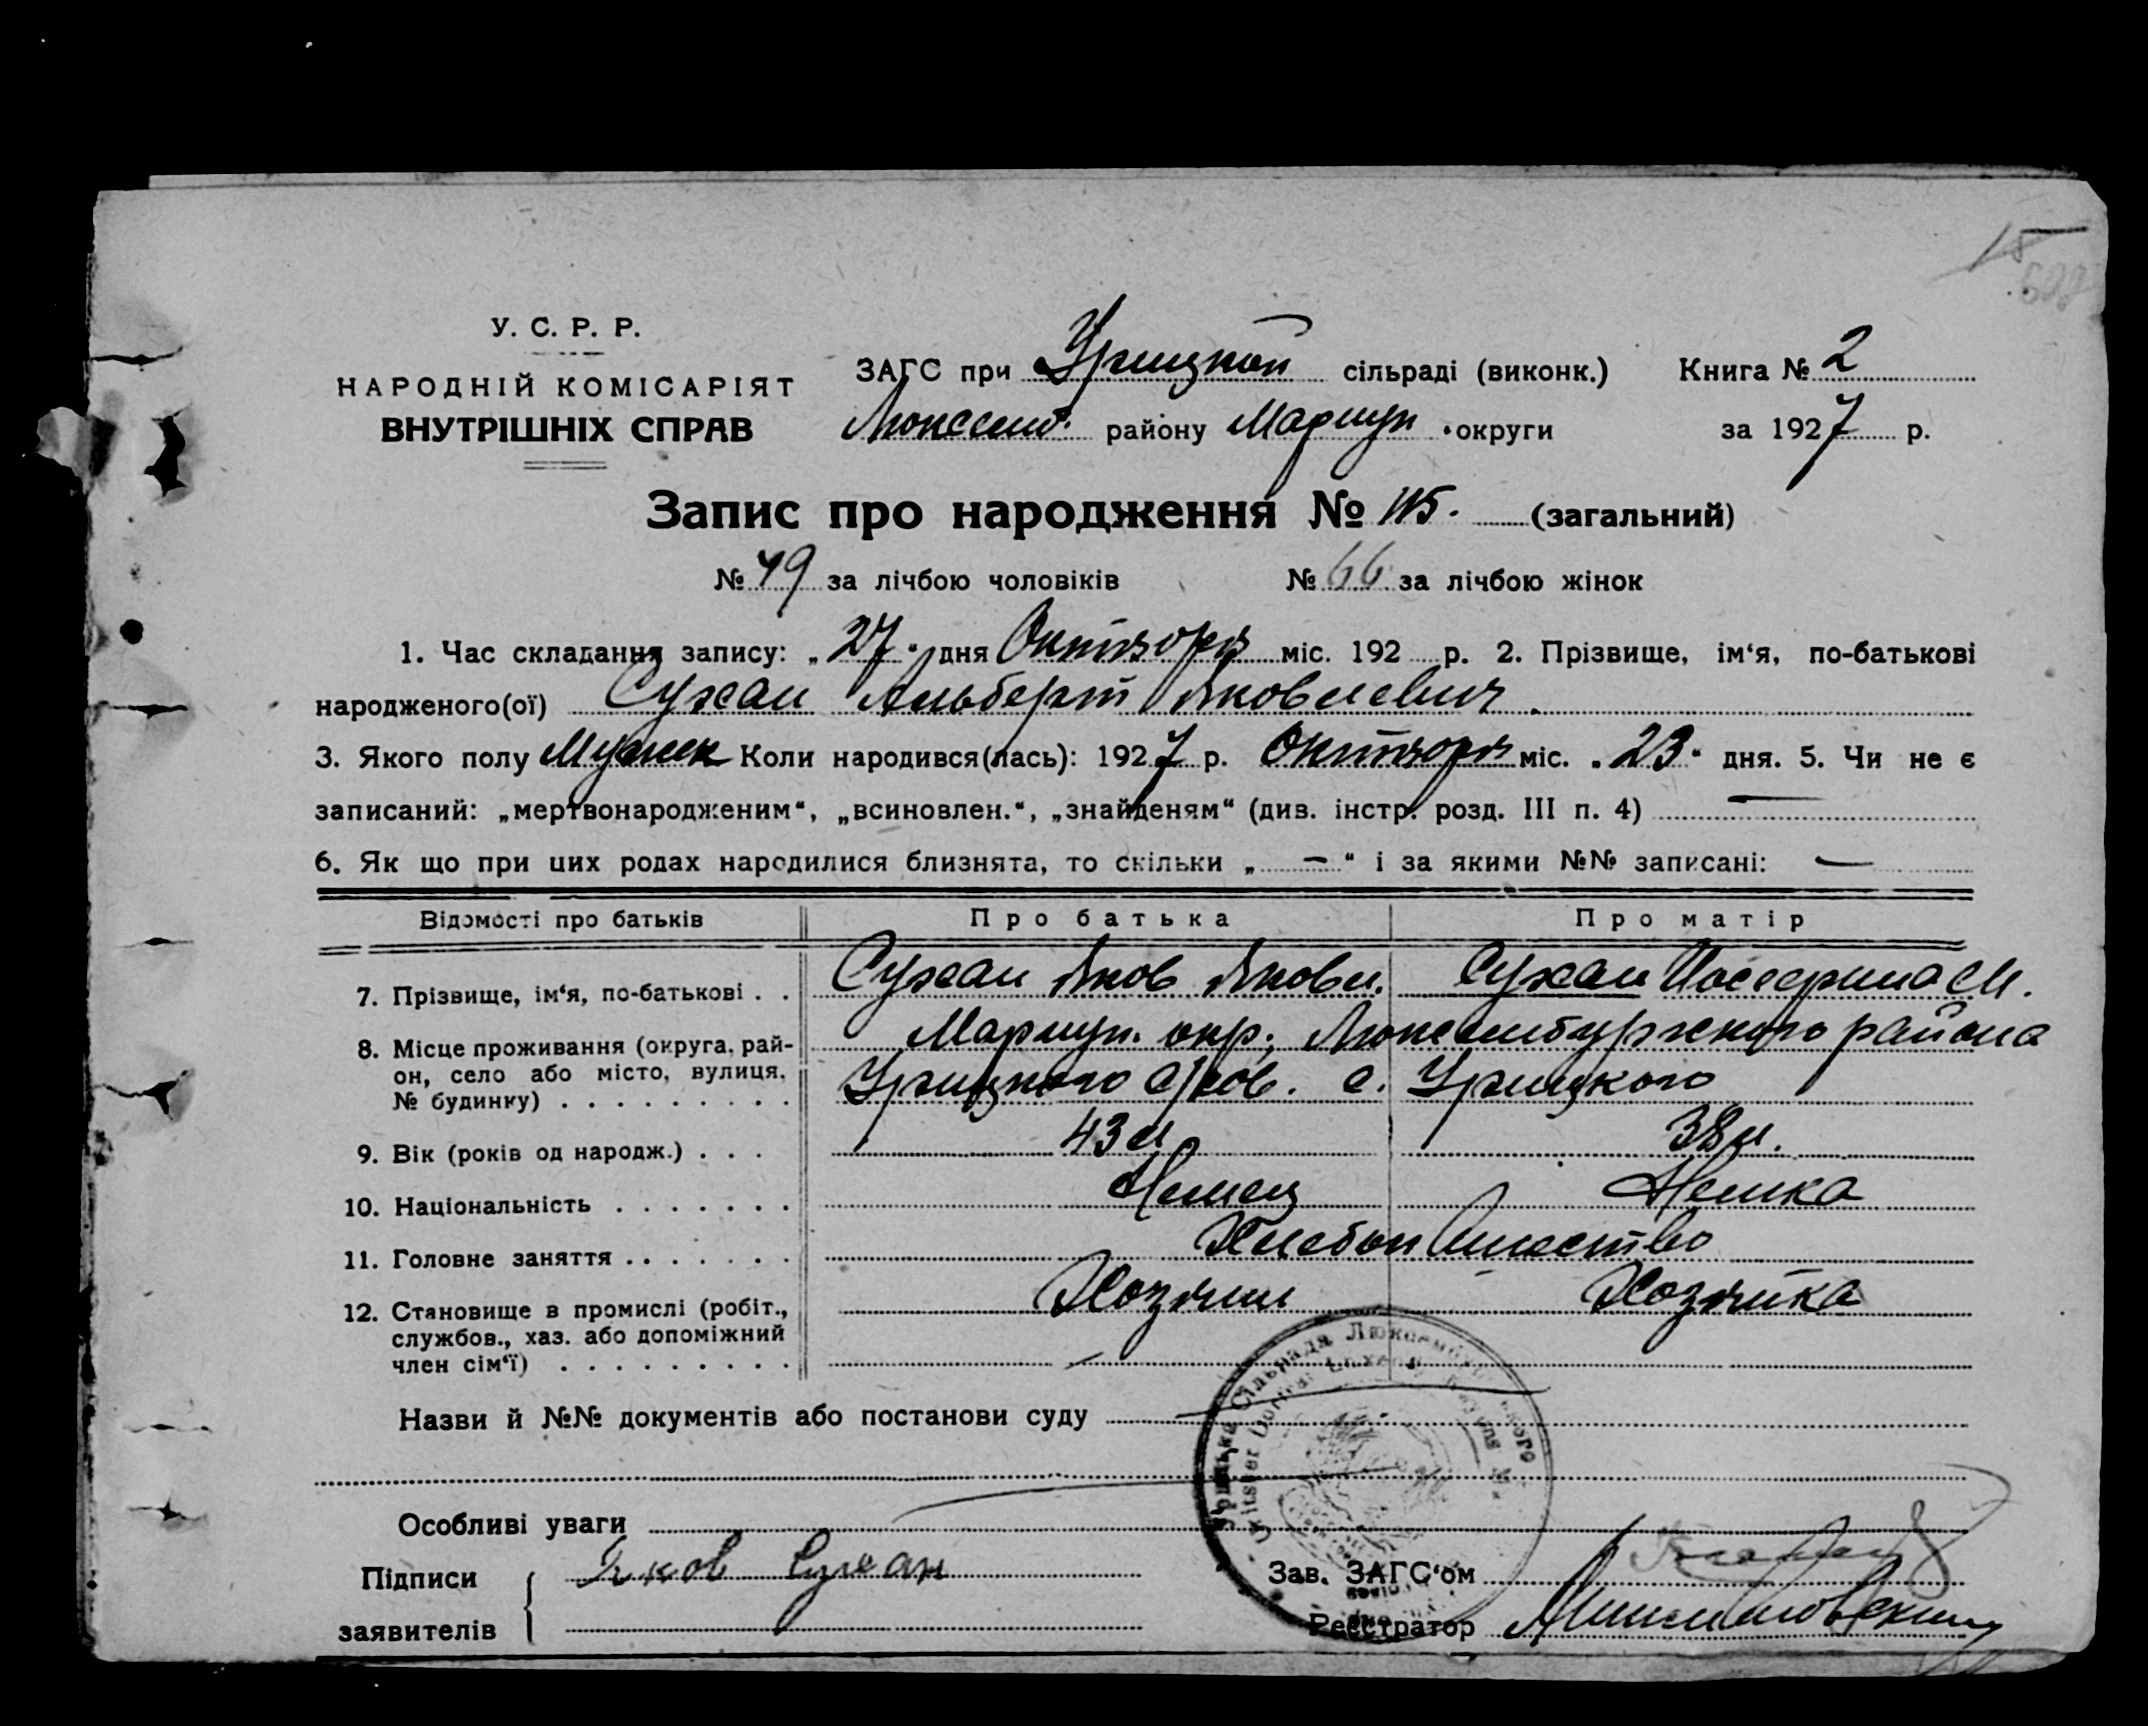 15
У. С. Р. Р.
НАРОДНІЙ КОМІСАРІЯТ
ВНУТРІШНІХ СПРАВ
ЗАГС при Урицкой сільраді (виконк.) Книга № 2
Люксемб. району Мариуп. округи за 1927 р.
Запис про народження № 115. (загальний)
№ 49 за лічбою чоловіків № 66 за лічбою жінок
1. Час складання запису: „27“ дня Октября міс. 192 р. 2. Прізвище, ім‘я, по-батькові
народженого(ої) Сухан Альберт Яковлевич.
3. Якого полу Мужск Коли народився(лась): 1927 р. Октября міс. „23“ дня. 5. Чи не є
записаний: „мертвонародженим“, „всиновлен.“, „знайденям“ (див. інстр. розд. III п. 4) —
6. Як що при цих родах народилися близнята, то скільки „—“ і за якими №№ записані: —
Відомості про батьків Про батька Про матір
7. Прізвище, ім‘я, по-батькові . . Сухан Яков Яковл. Сухан М.
8. Місце проживання (округа, рай- Мариуп. окр., Люксембургского района
он, село або місто, вулиця, Урицкого с. Урицкого
№ будинку) . . . . . . . . .
9. Вік (років од народж.) . . . 43 л 38 л.
10. Національність . . . . . . . Немец Немка
11. Головне заняття . . . . . . . Хлебопашество
12. Становище в промислі (робіт., Хозяин Хозяйка
службов., хаз. або допоміжний
член сім‘ї) . . . . . . . . .
Назви й №№ документів або постанови суду
Особливі уваги
Підписи Яков Сухан Зав. ЗАГС‘ом
заявителів Реєстратор
Урицька Сільрада Люксембурзького